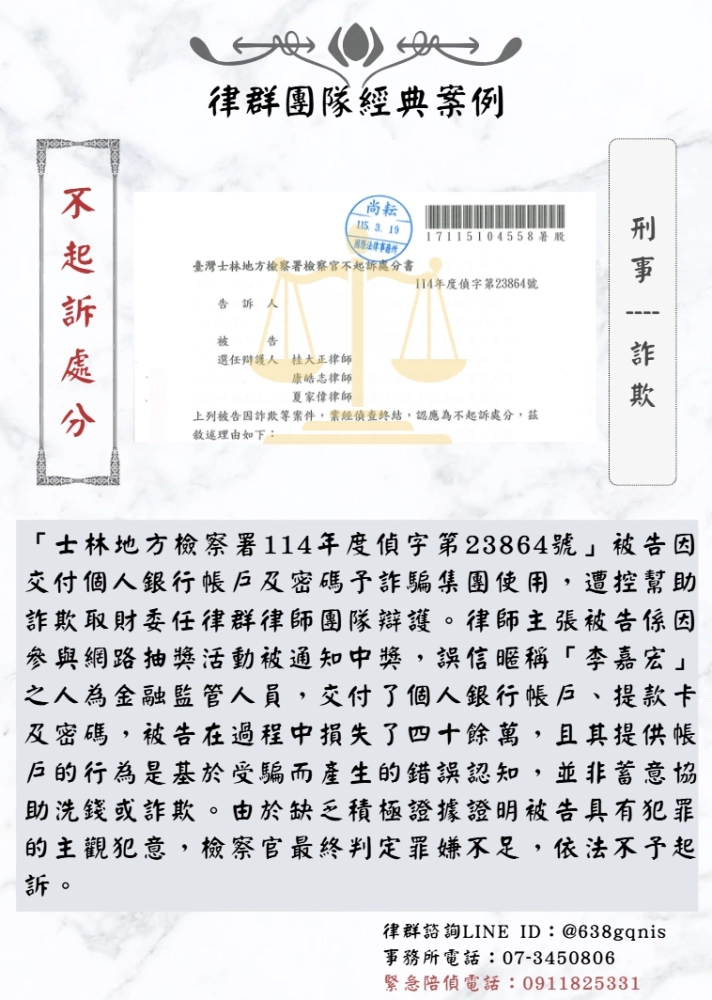 律群團隊經典案例
不起訴處分
尚耘
115. 3. 19
國際法律事務所
17115104558署 股
臺灣士林地方檢察署檢察官不起訴處分書
114年度偵字第23864號
告 訴 人
被 告
選任辯護人 桂大正律師
康皓志律師
夏家偉律師
上列被告因詐欺等案件,業經偵查終結,認應為不起訴處分,茲
敘述理由如下:
刑事----詐欺
「士林地方檢察署114年度偵字第23864號」被告因
交付個人銀行帳戶及密碼予詐騙集團使用,遭控幫助
詐欺取財委任律群律師團隊辯護。律師主張被告係因
參與網路抽獎活動被通知中獎,誤信暱稱「李嘉宏」
之人為金融監管人員,交付了個人銀行帳戶、提款卡
及密碼,被告在過程中損失了四十餘萬,且其提供帳
戶的行為是基於受騙而產生的錯誤認知,並非蓄意協
助洗錢或詐欺。由於缺乏積極證據證明被告具有犯罪
的主觀犯意,檢察官最終判定罪嫌不足,依法不予起
訴。
律群諮詢LINE ID:@638gqnis
事務所電話:07-3450806
緊急陪偵電話:0911825331